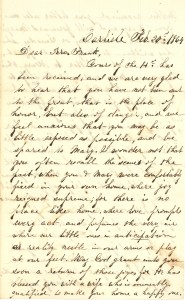 Carlisle Feb. 20th 1864
Dear Bro. Frank,
Yours of the 14th has
been received, and we are very glad
to hear that you have not been sent
to the front, that is the place of
honor, but also of danger, and we
feel anxious that you may be as
little exposed as possible, and be
spared to Mary. I wonder not that
you often recall the scenes of the
past, when you & Mary were comfortably
fixed in your own home, where joy
reigned supreme; for there is no
place like home, where love prompts
every act, and perfumes the very air
where our little ones in anticipation
or reality nestle in our arms or play
at our feet. May God grant unto you
soon a return of these joys, for He has
raised you with a wife who is eminently
qualified to make your home a happy one,